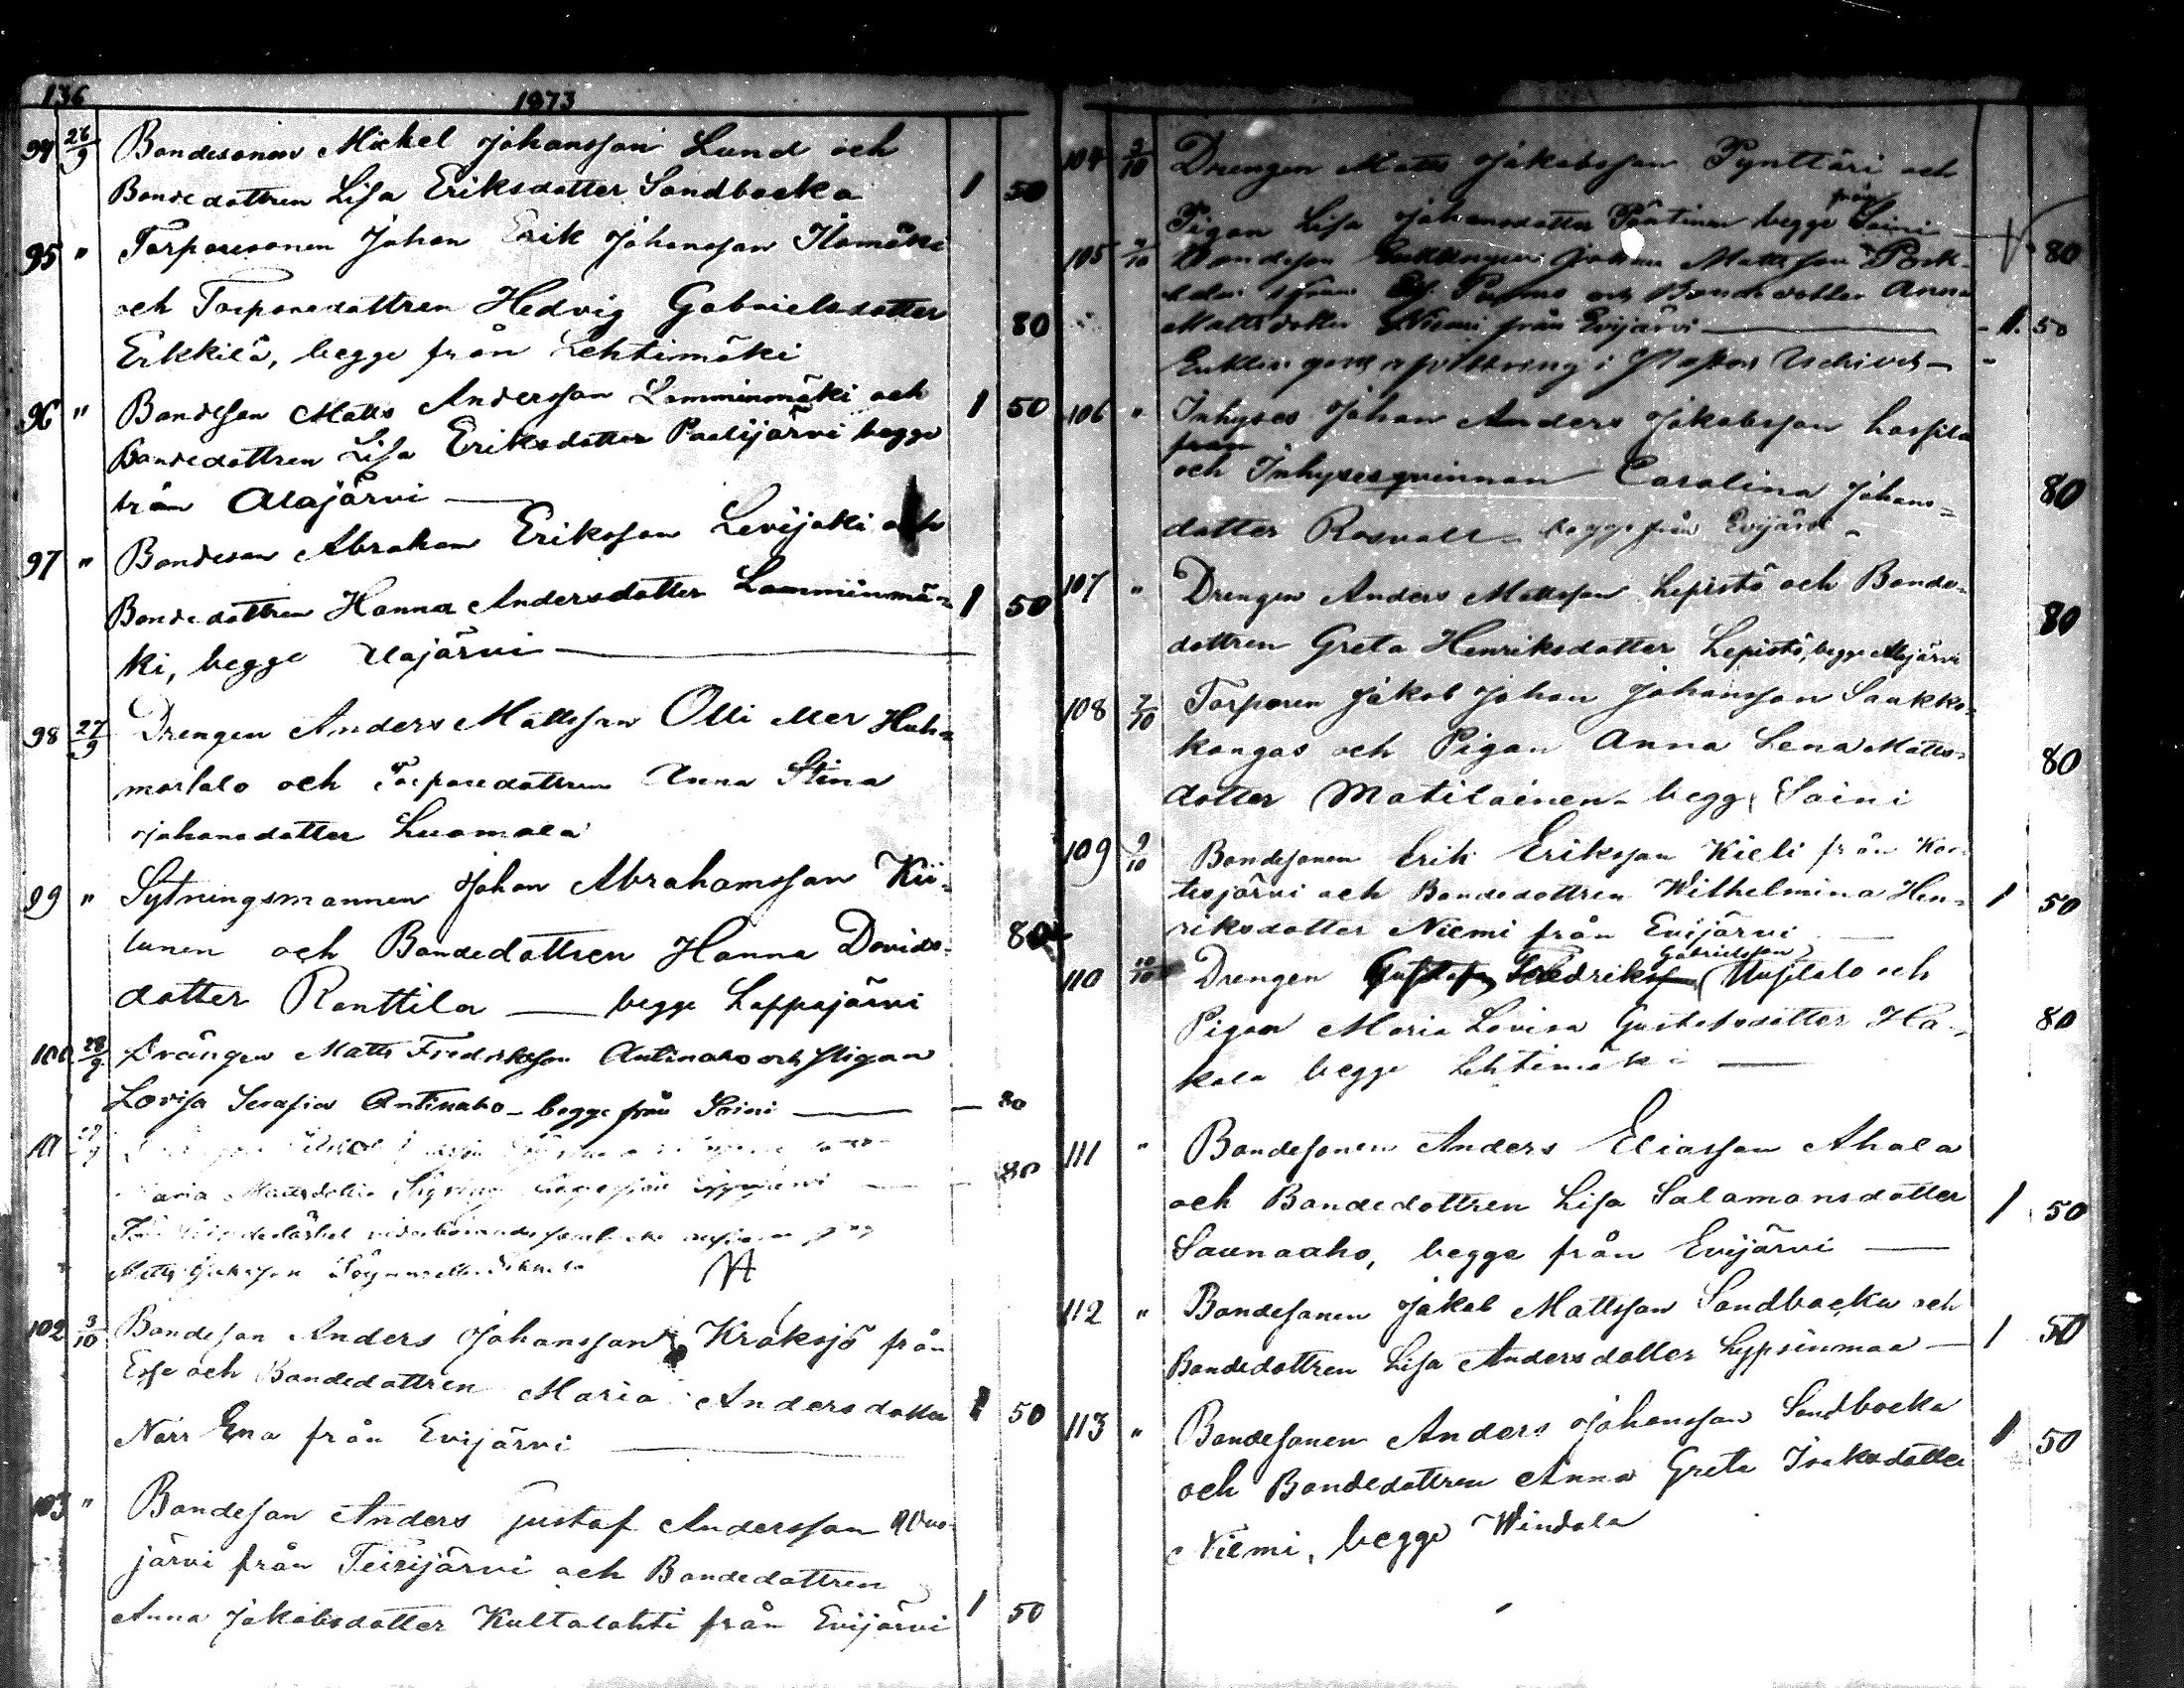 136
1873
94 26/9 Bondesonen Mickel Johansson Lund och
Bondedottren Lisa Eriksdotter Sandbacka 1 50
95 " Torparesonen Johan Erik Johansson Ilomäki
och Torparedottren Hedvig Gabrielsdotter 80
Erkkilä, begge från Lehtimäki
96 " Bondeson Matts Andersson Lamminmäki och 1 50
Bondedottren Lisa Eriksdotter Paalijärvi begge
från Alajärvi
97 " Bondeson Abraham Eriksson Levijoki och
Bondedottren Hanna Andersdotter Lamminmä- 1 50
ki, begge Alajärvi
98 27/9 Drengen Anders Mattsson Olli eller Huh-
marsalo och Torparedottren Anna Stina
Johansdotter Luomala
99 " Sytningsmannen Johan Abrahamsson Kii-
lunen och Bondedottren Hanna Davids- 80
dotter Ranttila begge Lappajärvi
100 28/9 Drängen Matts Fredriksson Antinaho och Pigan
Lovisa Serafia Antinaho - begge från Soini 80
101 29/9
Maria Mattsdotter 80
Matts
102 3/10 Bondeson Anders Johansson Kråksjö från
Esse och Bondedottren Maria Andersdotter 1 50
Norr Ena från Evijärvi
103 " Bondeson Anders Gustaf Andersson
järvi från Teirijärvi och Bondedottren
Anna Jakobsdotter Kultalahti från Evijärvi 1 50
104 3/10 Drengen Matts Jakobsson Pynttäri och
från
Pigan Lisa Johansdotter begge Soini 80
105 4/10 Bondeson Enklingen Johan Mattsson
och Bondedotter Anna
Mattsdotter Niemi från Evijärvi 1. 50
106 " Inhyses Johan Anders Jakobsson Lassila
från
och Inhysesqvinnan Carolina Johans- 80
dotter Rosvall - begge från Evijärvi -
107 " Drengen Anders Mattsson Lepistö och Bonde-
dottren Greta Henriksdotter Lepistö, begge Alajärvi 80
108 7/10 Torparen Jakob Johan Johansson Saukko-
kangas och Pigan Anna Lena Matts- 80
dotter Matilainen - begge Soini
109 9/10 Bondesonen Erik Eriksson Kieli från Kor-
tesjärvi och Bondedottren Wilhelmina Hen- 1 50
riksdotter Niemi från Evijärvi
Gabrielsson
110 10/10 Drengen Gustaf Fredriksson Uusitalo och
Pigan Maria Lovisa Gustafsdotter Ha- 80
kala begge Lehtimäki
111 " Bondesonen Anders Eliasson Ahola
och Bondedottren Lisa Salomonsdotter 1 50
Saunaaho, begge från Evijärvi
112 " Bondesonen Jakob Mattsson Sandbacka och
Bondedottren Lisa Andersdotter Lypsinmaa 1 50
113 " Bondesonen Anders Johansson Sandbacka
och Bondedottren Anna Greta Isaksdotter 1 50
Niemi, begge Windala